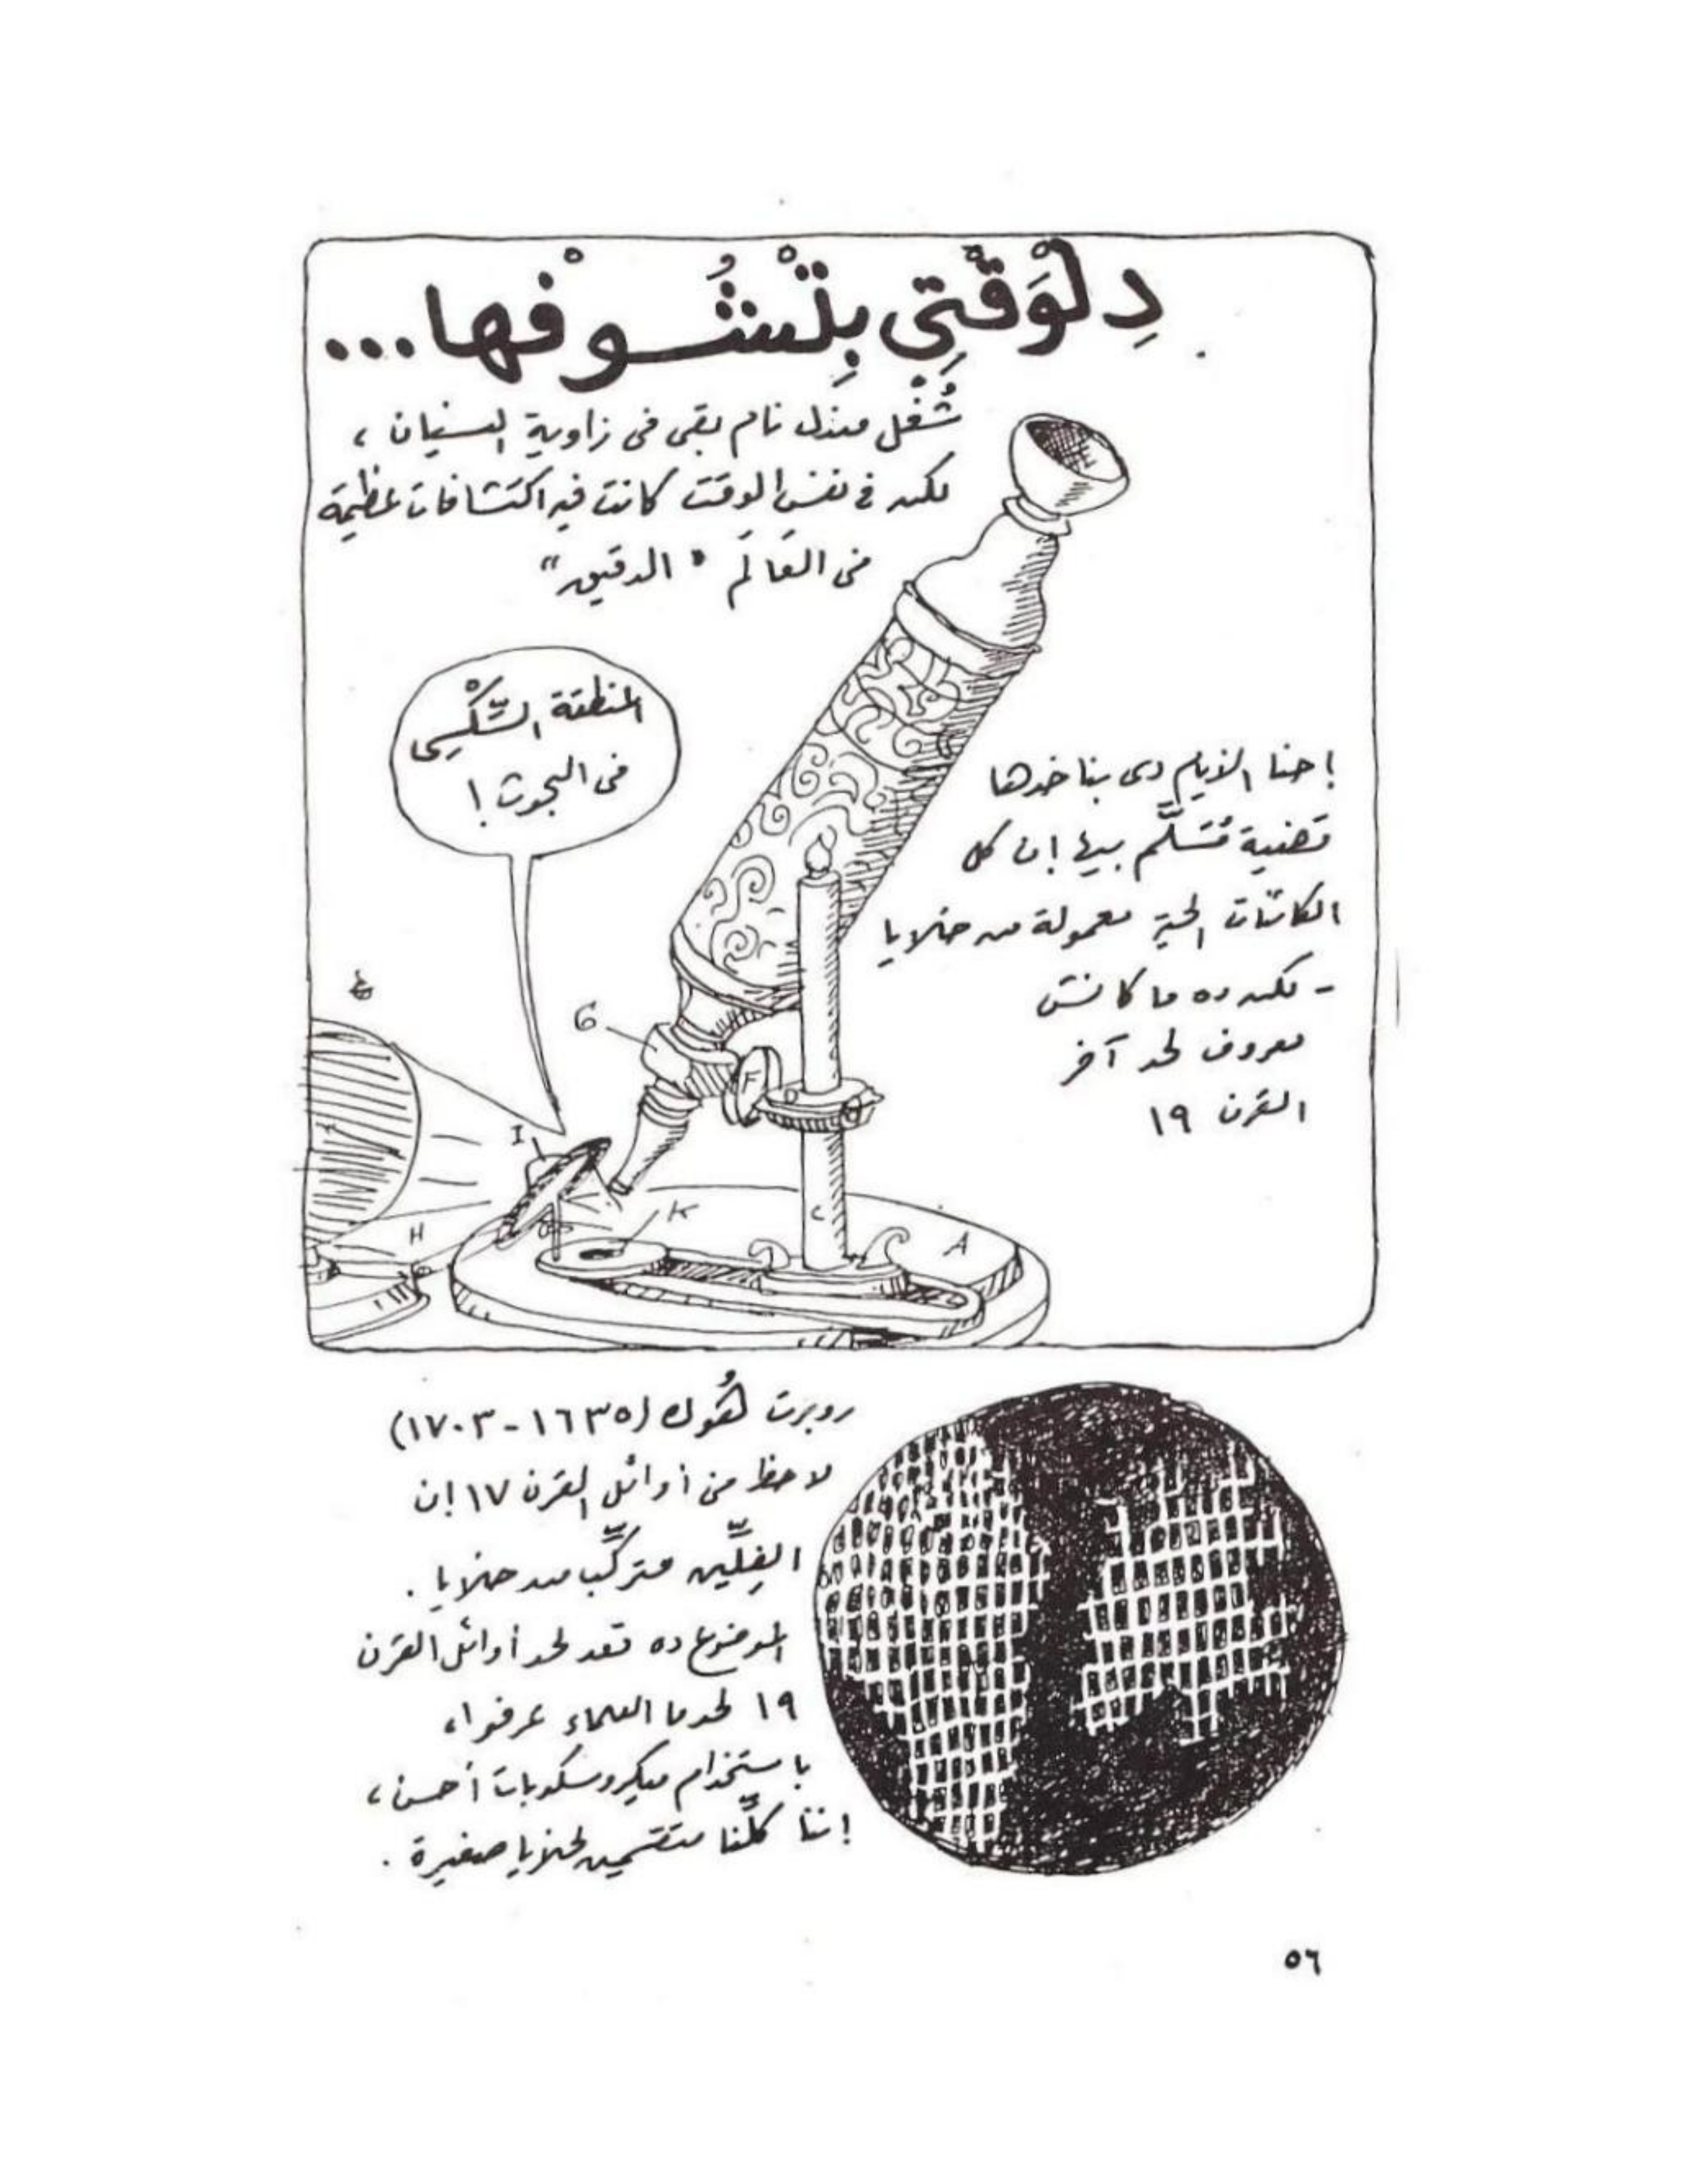 دِلْوَقْتِي بِتْشُوفْها...
شُغْل مندل نام بقى فى زاوية النسيان،
لكن فى نفس الوقت كانت فيه اكتشافات عظيمة
فى العَالَم "الدقيق"
المنطقة السِّكْسِى
فى البحوث!
إحنا الأيام دى بناخدها
قضية مُسَلَّم بيها إن كل
الكائنات الحية معمولة من خلايا
- لكن ده ما كانش
معروف لحد آخر
القرن ١٩
G
F
D
I
K
C
H
A
روبرت هُوك (١٦٣٥-١٧٠٣)
لاحظ من أوائل القرن ١٧ إن
الفِلِّين متركِّب من خلايا.
الموضوع ده قعد لحد أوائل القرن
١٩ لحد ما العلماء عرفوا،
باستخدام ميكروسكوبات أحسن،
إننا كلِّنا متقسمين لخلايا صغيرة.
٥٦